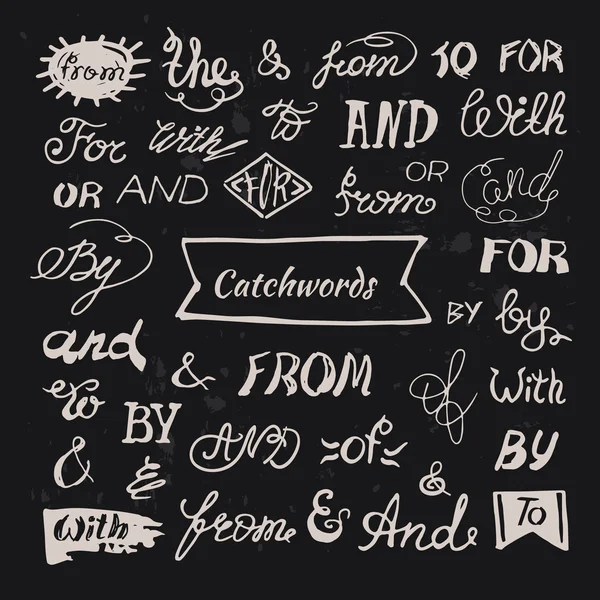 from the & from TO FOR
For With to AND With
OR AND FOR from OR and
By Catchwords FOR
BY by
and & FROM of With
to BY AND of BY
& & &
With from & And To